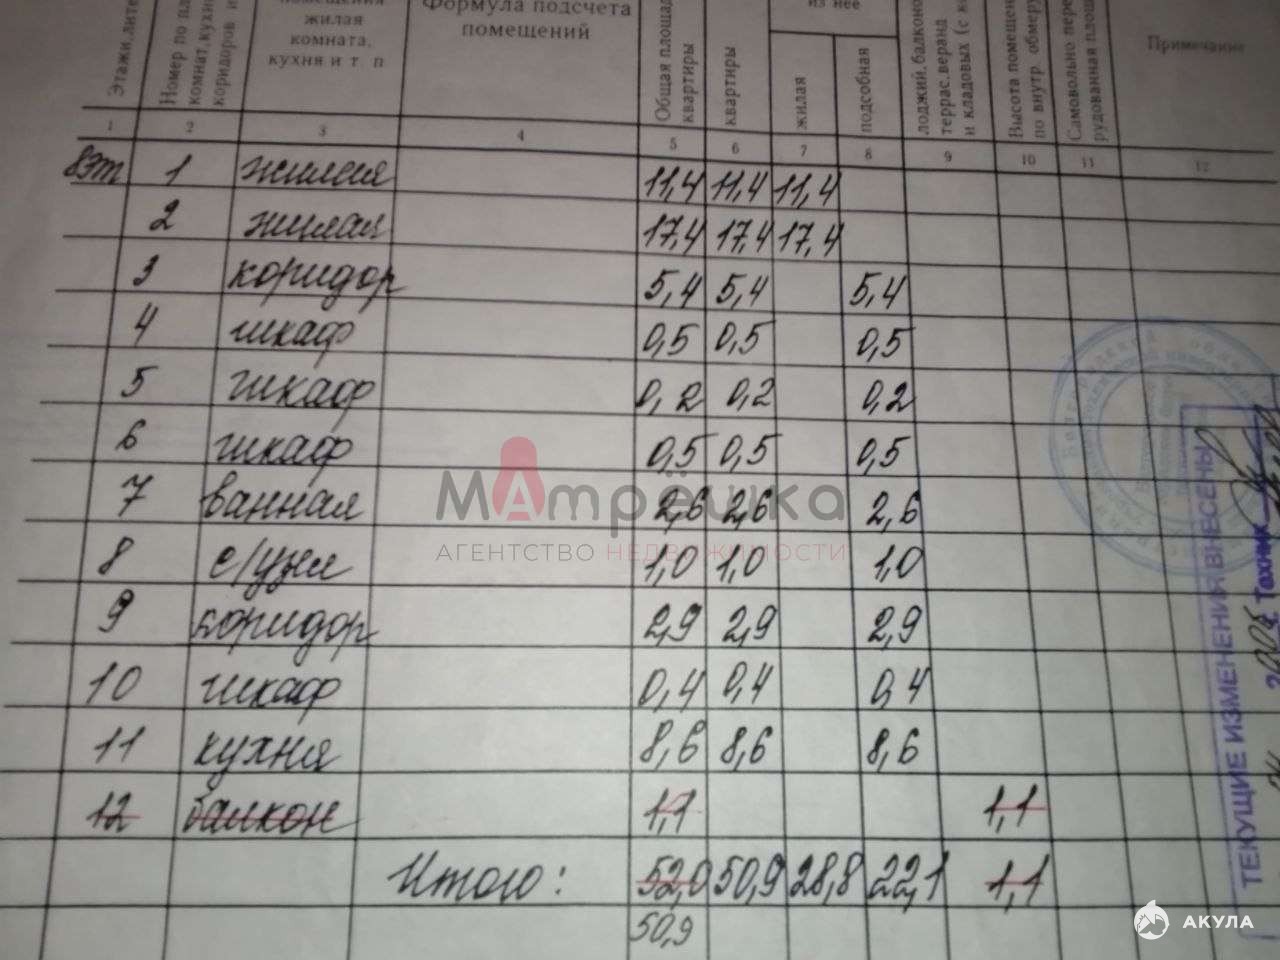 Этажи, лите
Номер по пл
комнат, кухн
коридоров и
помещения
жилая
комната,
кухня и т. п
Формула подсчета
помещений
Общая площад
квартиры
квартиры
из нее
жилая
подсобная
лоджий, балконо
террас, веранд
и кладовых (с к
Высота помещен
по внутр. обмеру
Самовольно пере
рудованная площ
Примечание
1 2 3 4 5 6 7 8 9 10 11 12
8эт 1 жилая 11,4 11,4 11,4
2 жилая 17,4 17,4 17,4
3 коридор 5,4 5,4 5,4
4 шкаф 0,5 0,5 0,5
5 шкаф 0,2 0,2 0,2
6 шкаф 0,5 0,5 0,5
7 ванная 2,6 2,6 2,6
8 с/узел 1,0 1,0 1,0
9 коридор 2,9 2,9 2,9
10 шкаф 0,4 0,4 0,4
11 кухня 8,6 8,6 8,6
12 балкон 1,1 1,1
Итого: 52,0 50,9 28,8 22,1 1,1
50,9
МАтрёшка
АГЕНТСТВО НЕДВИЖИМОСТИ
ТЕКУЩИЕ ИЗМЕНЕНИЯ ВНЕСЕНЫ
Техник
АКУЛА